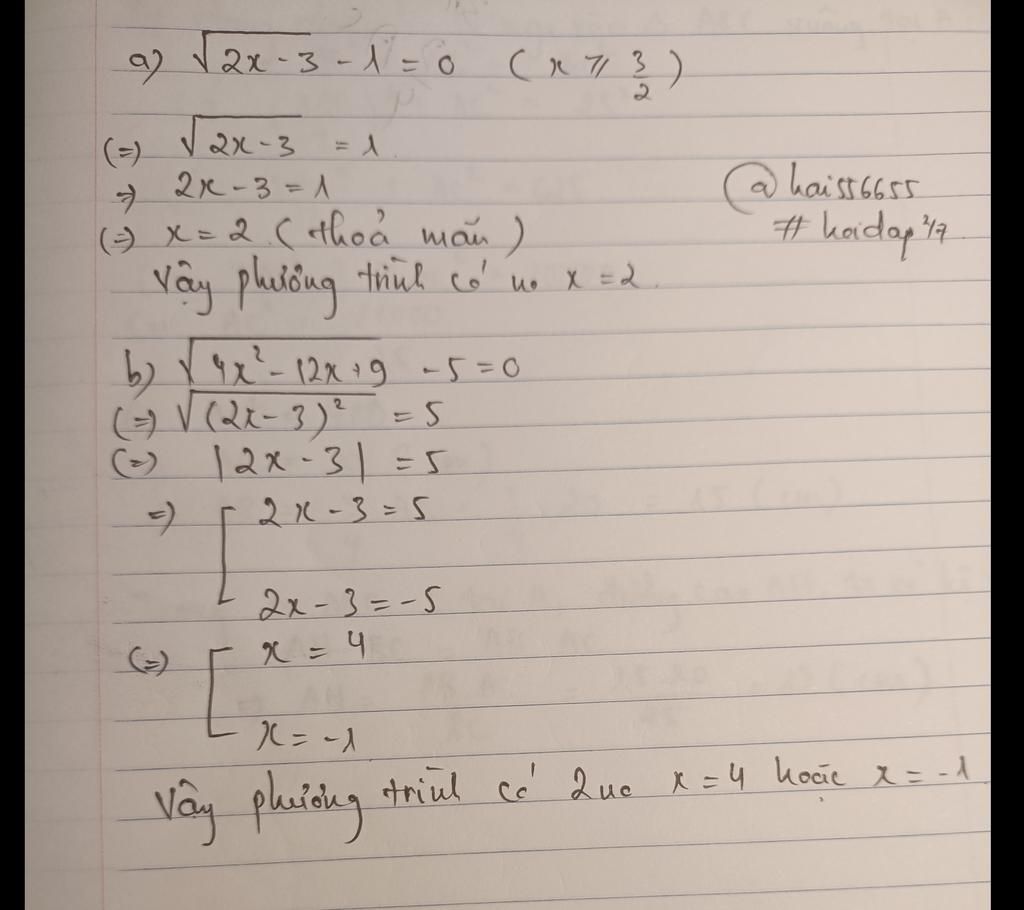 a) √(2x-3) - 1 = 0 (x ≥ 3/2)
(=) √(2x-3) = 1
=> 2x-3 = 1
(=) x = 2 (thoả mãn)
Vậy phương trình có no x = 2.
@hai556655
#hoidap247
b) √(4x²-12x+9) - 5 = 0
(=) √((2x-3)²) = 5
(=) |2x-3| = 5
=) [ 2x-3 = 5
2x-3 = -5
(=) [ x = 4
x = -1
Vậy phương trình có 2 no x = 4 hoặc x = -1